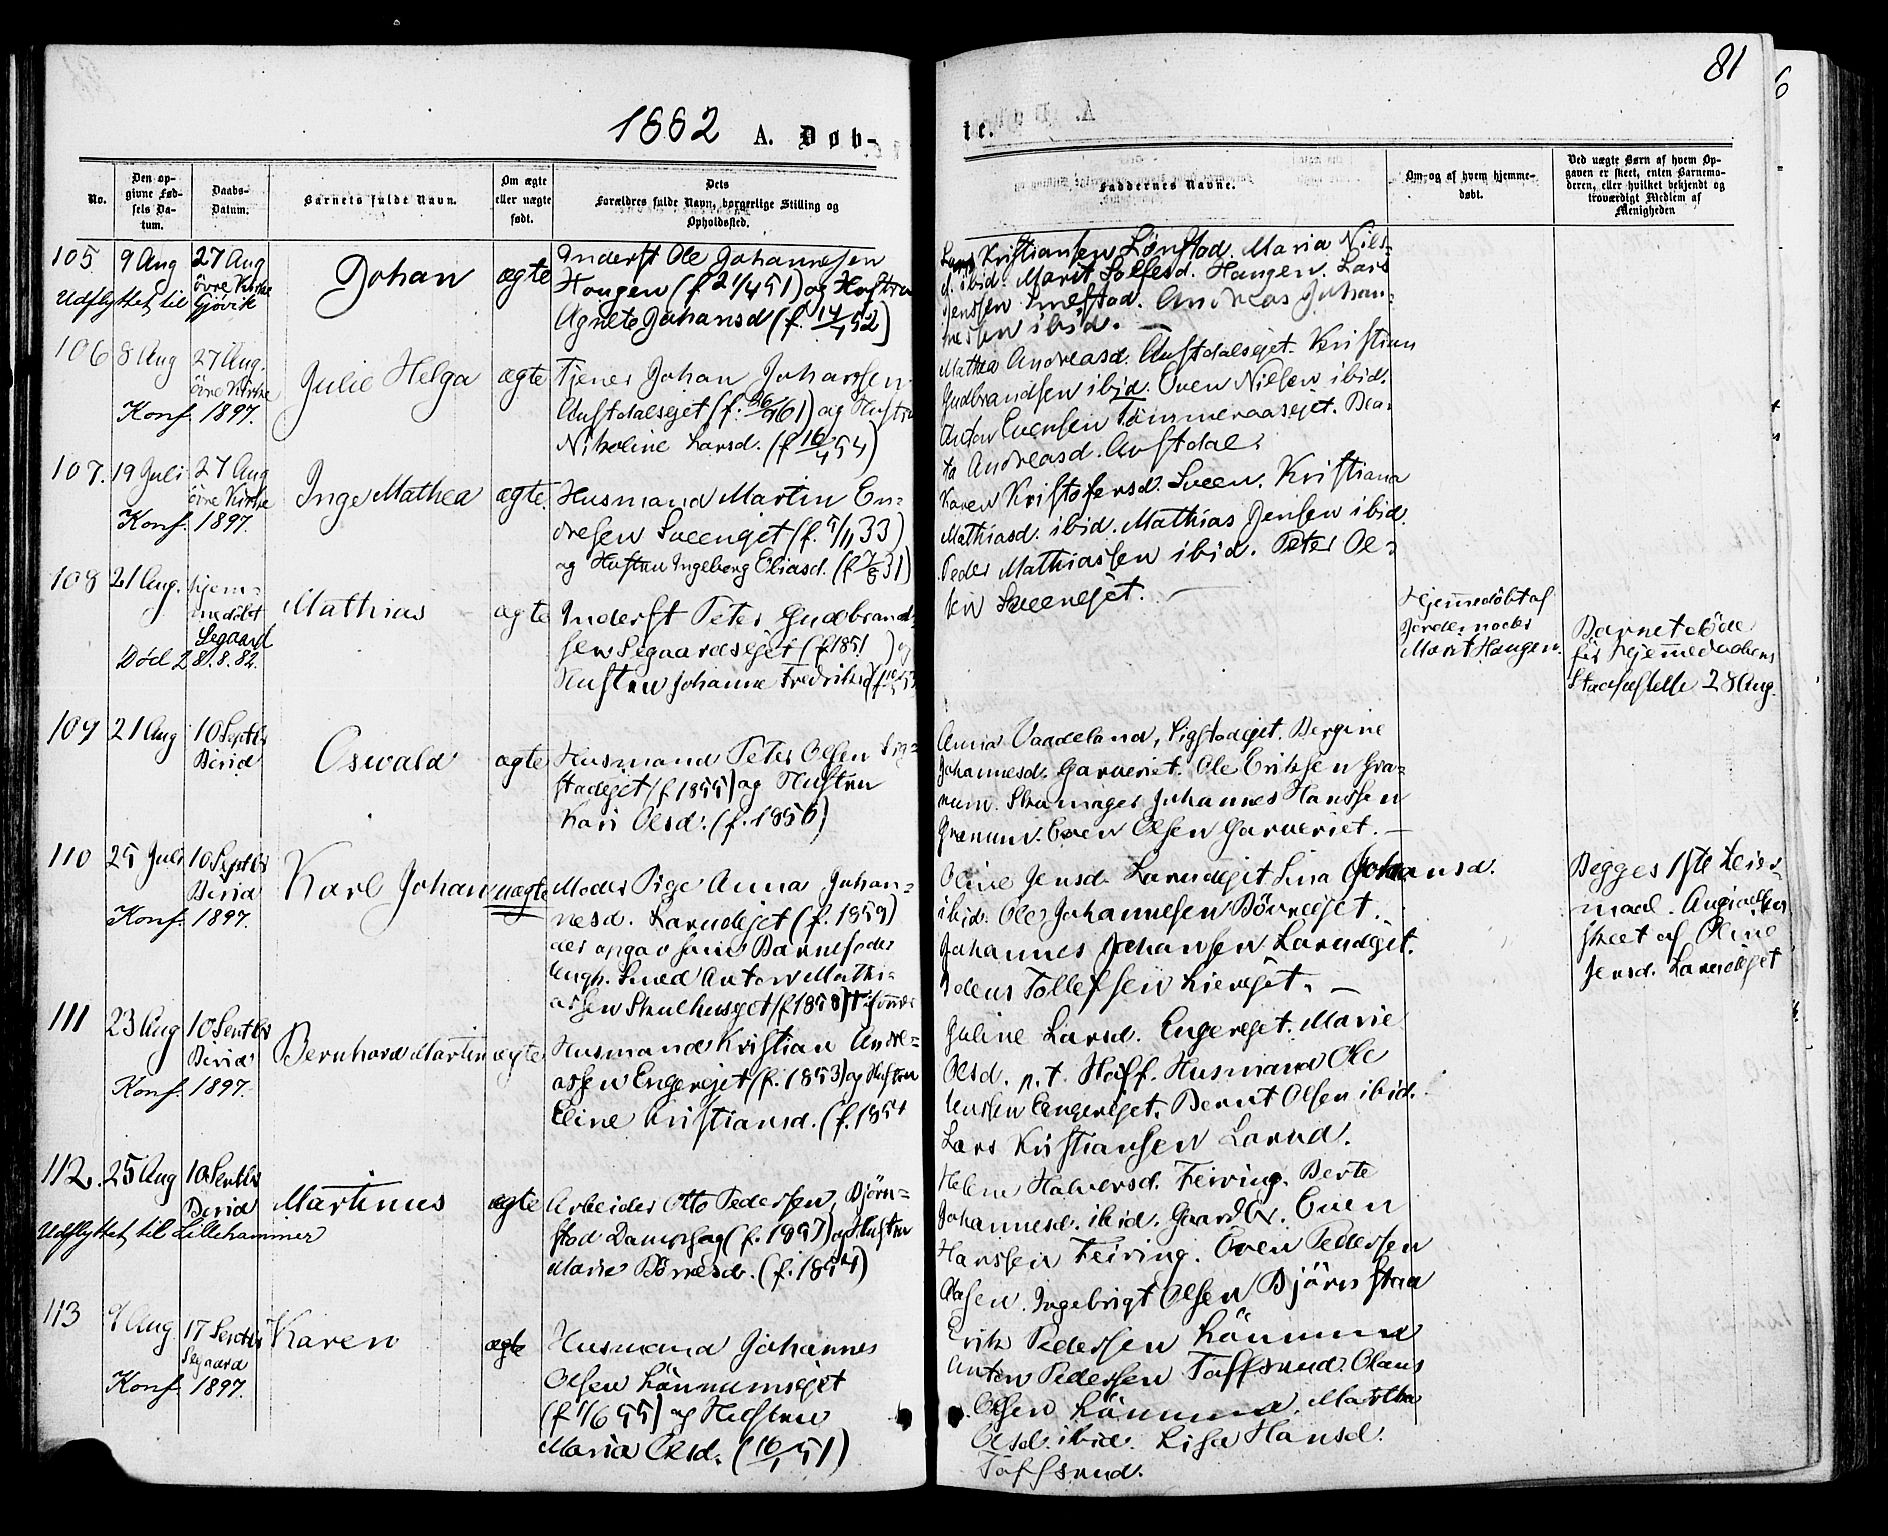 81
1882 A. Døb-
te.
No.
Den op-
givne Fød-
sels Da-
tum.
Daabs-
Datum.
Barnets fulde Navn.
Om ægte
eller uægte
født.
Dets
Forældres fulde Navn, borgerlige Stilling og
Opholdssted.
Faddernes Navne.
Om og af hvem hjemme-
døbt.
Ved uægte Børn af hvem Op-
gaven er skeet, enten Barnemo-
deren, eller hvilket bekjendt og
troværdigt Medlem af
Menigheden
105 9 Aug 27 Aug
övre Kirke
Udflyttet til Gjövik
Johan
ægte
Inderst Ole Johannesen
Haugen (f 21/4 51) og Hustru
Agnete Johansd (f. 14/1 52)
Lars Kristiansen Lönstad. Maria Nils-
d. ibid. Marit Haugen. Lars
Jenssen Andreas Johan-
nessen ibid. —
106 8 Aug 27 Aug.
övre Kirke
Konf. 1897.
Julie Helga
ægte
Tjener Johan Johanssen
Austdalsejet (f. 61) og Hustru
Nikoline Larsd. (f 16/ 54)
Mathea Andreasd. Austdalsejet. Kristian
Gudbrandsen ibid. Even Nilsen ibid.
Anton Evensen Tömmeraasejet. Bea-
ta Andreasd. Austdal.
107. 19 Juli 27 Aug
övre Kirke
Konf. 1897.
Inge Mathea
ægte.
Husmand Martin En-
dresen Sveenejet (f. 5/11 33)
og Hustru Ingeborg Eliasd. (f 7/8 31)
Karen Kristofersd. Sveen. Kristiana
Mathiasd. ibid. Mathias Jensen ibid.
Peder Mathiassen ibid. Peter Ol-
sen Sveenejet. —
108 21 Aug. hjem-
medöbt
Segaard
Död 28.8.82.
Mathias
ægte
Inderst Peter Gudbrand-
sen Segaardsejet (f. 1851 ) og
Hustru Johanne Fredriksd
Hjemmedöbt af
Jordemoder
Marit Haugen.
Barnet döde
för Hjemmedaabens
Stadfæstelse 28 Aug.
109 21 Aug 10 Septbr
Birid
Oswald
ægte
Husmand Peter Olsen Sig-
stadejet (f. 1855) og Hustru
Kari Olsd. (f. 1856)
Anna Vaadeland, Sigstadejet. Bergine
Johannesd. Garveriet. Ole Eriksen Gra-
num. Skomager Johannes Hanssen
Granum. Even Olsen Garveriet. —
110 25 Juli 10 Septbr
Birid
Konf. 1897.
Karl Johan
uægte
Moder Pige Anna Johan-
nesd. Larudejet (f. 1859)
der opgav som Barnefader
Ungk. Smed Anton Mathi-
assen Skulhusejet (f 1858)
Oline Jensd. Larudejet Lina Johansd.
ibid. Ole Johannesen Bövreejet.
Johannes Johansen Larudejet.
Tollefsen Lienejet. —
Begges 1ste Leier-
maal. Angivelsen
skeet af Oline
Jensd. Larudejet
111 23 Aug 10 Septbr
Birid
Konf. 1897.
Bernhard Martin
ægte
Husmand Kristian Andre-
assen Engeejet (f. 1853) og Hustru
Eline Kristiansd. (f. 1854
Guline Larsd. Engeejet. Marie
Olsd. p. t. Hoff. Husmand Ole
Jenssen Engeejet. Bernt Olsen ibid.
Lars Kristiansen Larud.
112. 25 Aug 10 Septbr
Birid
Udflyttet til Lillehammer
Martinus
ægte
Arbeider Otto Pedersen, Björn-
stad Dampsag (f. 1857) og Hustru
Marie (f. 1854)
Helene Halversd. Feiring. Berte
Johannesd. ibid. Gaardbr. Even
Hanssen Feiring. Even Pedersen
Aasen. Ingebrigt Olsen Björnstad
113 9 Aug 17 Septbr
Segaard
Konf. 1897.
Karen
ægte
Husmand Johannes
Olsen Lönnumsejet
(f 1/6 55) og Hustru
Maria Olsd. (16/1 51)
Erik Pedersen Lönnum
Anton Pedersen Toffsrud. Olaus
Olsen Lönnum. Martha
Olsd. ibid. Lisa Hansd.
Toffsrud.